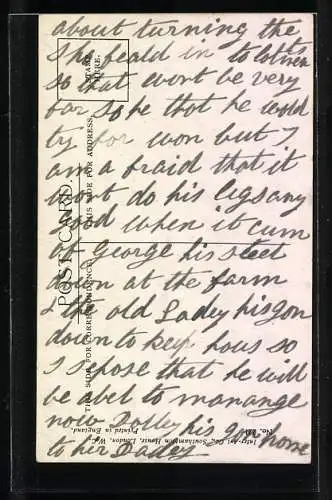 about turning the
She heald in to
so that wont be very
far so he that he would
try for won but I
am a fraid that it
wont do his legs any
good when it cum
of George his steel
down at the farm
& the old Ladey his gon
down to keep hous so
I spose that he will
be abel to manange
now Dolley his gon home
to her Dadey
POST CARD
THIS SIDE FOR CORRESPONDENCE.
THIS SIDE FOR ADDRESS.
STAMP
HERE.
Inter-Art Co., Southampton House, London, W.C.
Printed in England.
No.